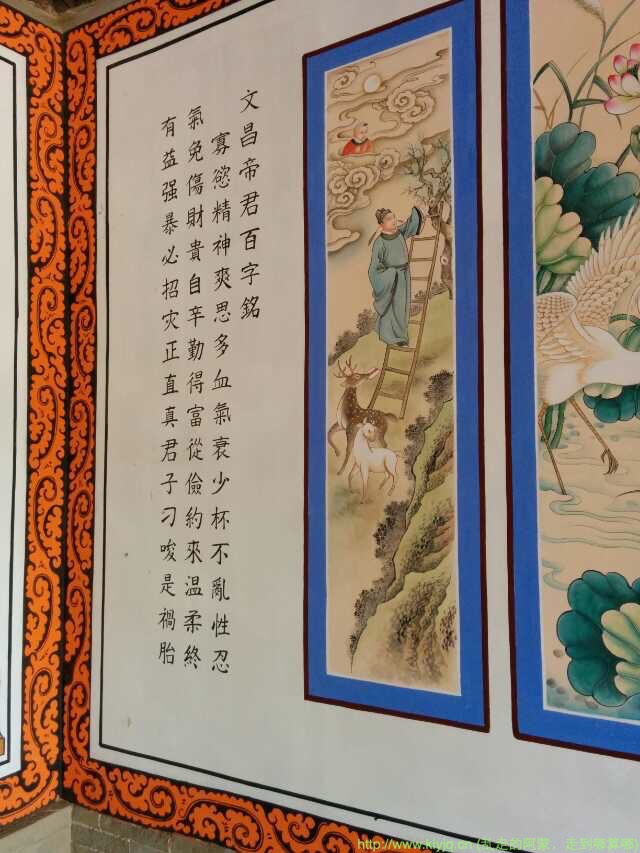 文昌帝君百字銘
寡慾精神爽思多血氣衰少杯不亂性忍
氣免傷財貴自辛勤得富從儉約來温柔終
有益强暴必招灾正直真君子刁唆是禍胎
走的阿蒙，走到哪算哪